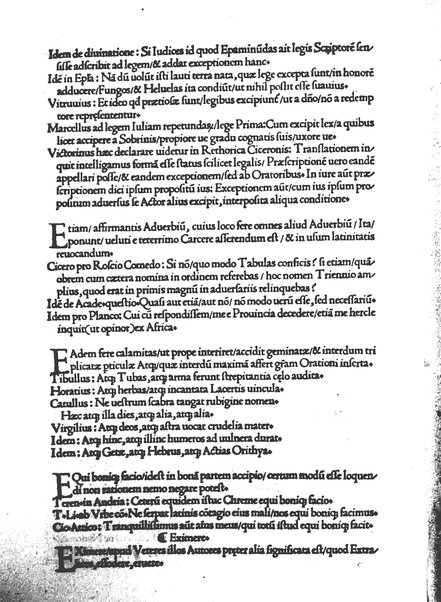 Idem de diuinatione : Si Iudices id quod Epaminūdas ait legis Scriptorē sen
sisse adscribit ad legem/& addat exceptionem hanc•
Idē in Epſa: Nā dū uolūt isti lauti terra nata, quæ lege excepta sunt/in honorē
adducere/Fungos/& Heluelas ita condiūt/ut nihil possit esse suauius•
Vitruuius: Et ideo qđ prætiosæ sunt/legibus excipiunt̃/ut a dño/nō a redemp
tore repręsententur•
Marcellus ad legem Iuliam repetundaꝝ/lege Prima:Cum excipit lex/a quibus
licet accipere a Sobrinis/propiore ue gradu cognatis suis/uxore ue•
Victorinus hæc declarare uidetur in Rethorica Ciceronis: Translationem in
quit intelligamus formā esse status scilicet legalis/ Præscriptionē uero eandē
appellari posse/& eandem exceptionem/sed ab Oratoribus• In iure aūt præ
scriptionem dici ipsum propositū ius: Exceptionem aūt/cum ius ipsum pro
positum aduersus se Actor alius excipit, interposita aliqua conditione•
Etiam/ affirmantis Aduerbiū, cuius loco fere omnes aliud Aduerbiū /Ita/
ponunt/ueluti e teterrimo Carcere asserendum est /& in usum latinitatis
reuocandum•
Cicero pro Roscio Comedo: Si nō/quo modo Tabulas conficis? si etiam/quā
obrem cum cætera nomina in ordinem referebas / hoc nomen Triennio am
plius, quod erat in primis magnū in aduersariis relinquebas?
Idē de Acade•quęstio•Quasi aut etiā/aut nō/ nō modo uerū esse, sed necessariū•
Idem pro Planco: Cui cū respondissem/me e Prouincia decedere/etiā me hercle
inquit(ut opinor)ex Africa•
EAdem fere calamitas/ut prope interiret/accidit geminatæ/& interdum tri
plicatæ pticulæ Atq3/quæ interdū maximā affert gr̃am Orationi inserta•
Tibullus: Atq3 Tubas, atq3 arma ferunt strepitantia cęlo audita•
Horatius: Atq3 herbas/atq3 incantata Lacertis uincula•
Catullus: Ne uestrum scabra tangat rubigine nomen•
Hæc atq3 illa dies, atq3 alia, atq3 alia•
Virgilius: Atq3 deos, atq3 astra uocat crudelia mater•
Idem: Atq3 hinc, atq3 illinc humeros ad uulnera durat•
Idem: Atq3 Getæ, atq3 Hebrus, atq3 Actias Orithya•
EQui boniq3 facio/idest in bonā partem accipio/ certum modū esse loquen
di non rationem nemo negare potest•
Teren•in Andria: Ceterū equidem istuc Chreme equi boniq3 facio•
T•Li•ab Vrbe cō• Ne serpat latinis cōtagio eius mali/nos equi boniq3 facimus•
Cic•Attico: Tranquillissimus aūt afus meus/qui totū istud equi boniq3 facit•
¶ Eximere•
EXimere/apud Veteres illos Autores pręter alia significata est/quod Extra
here, effodere, eruere•